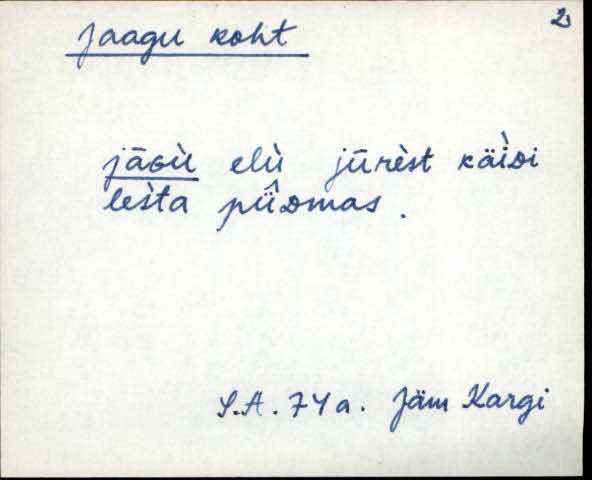 2
Jaagu koht
jāGù elù jūrèst käìDi
lešta pîiDmas.
S.A. 74a. Jäm Kargi